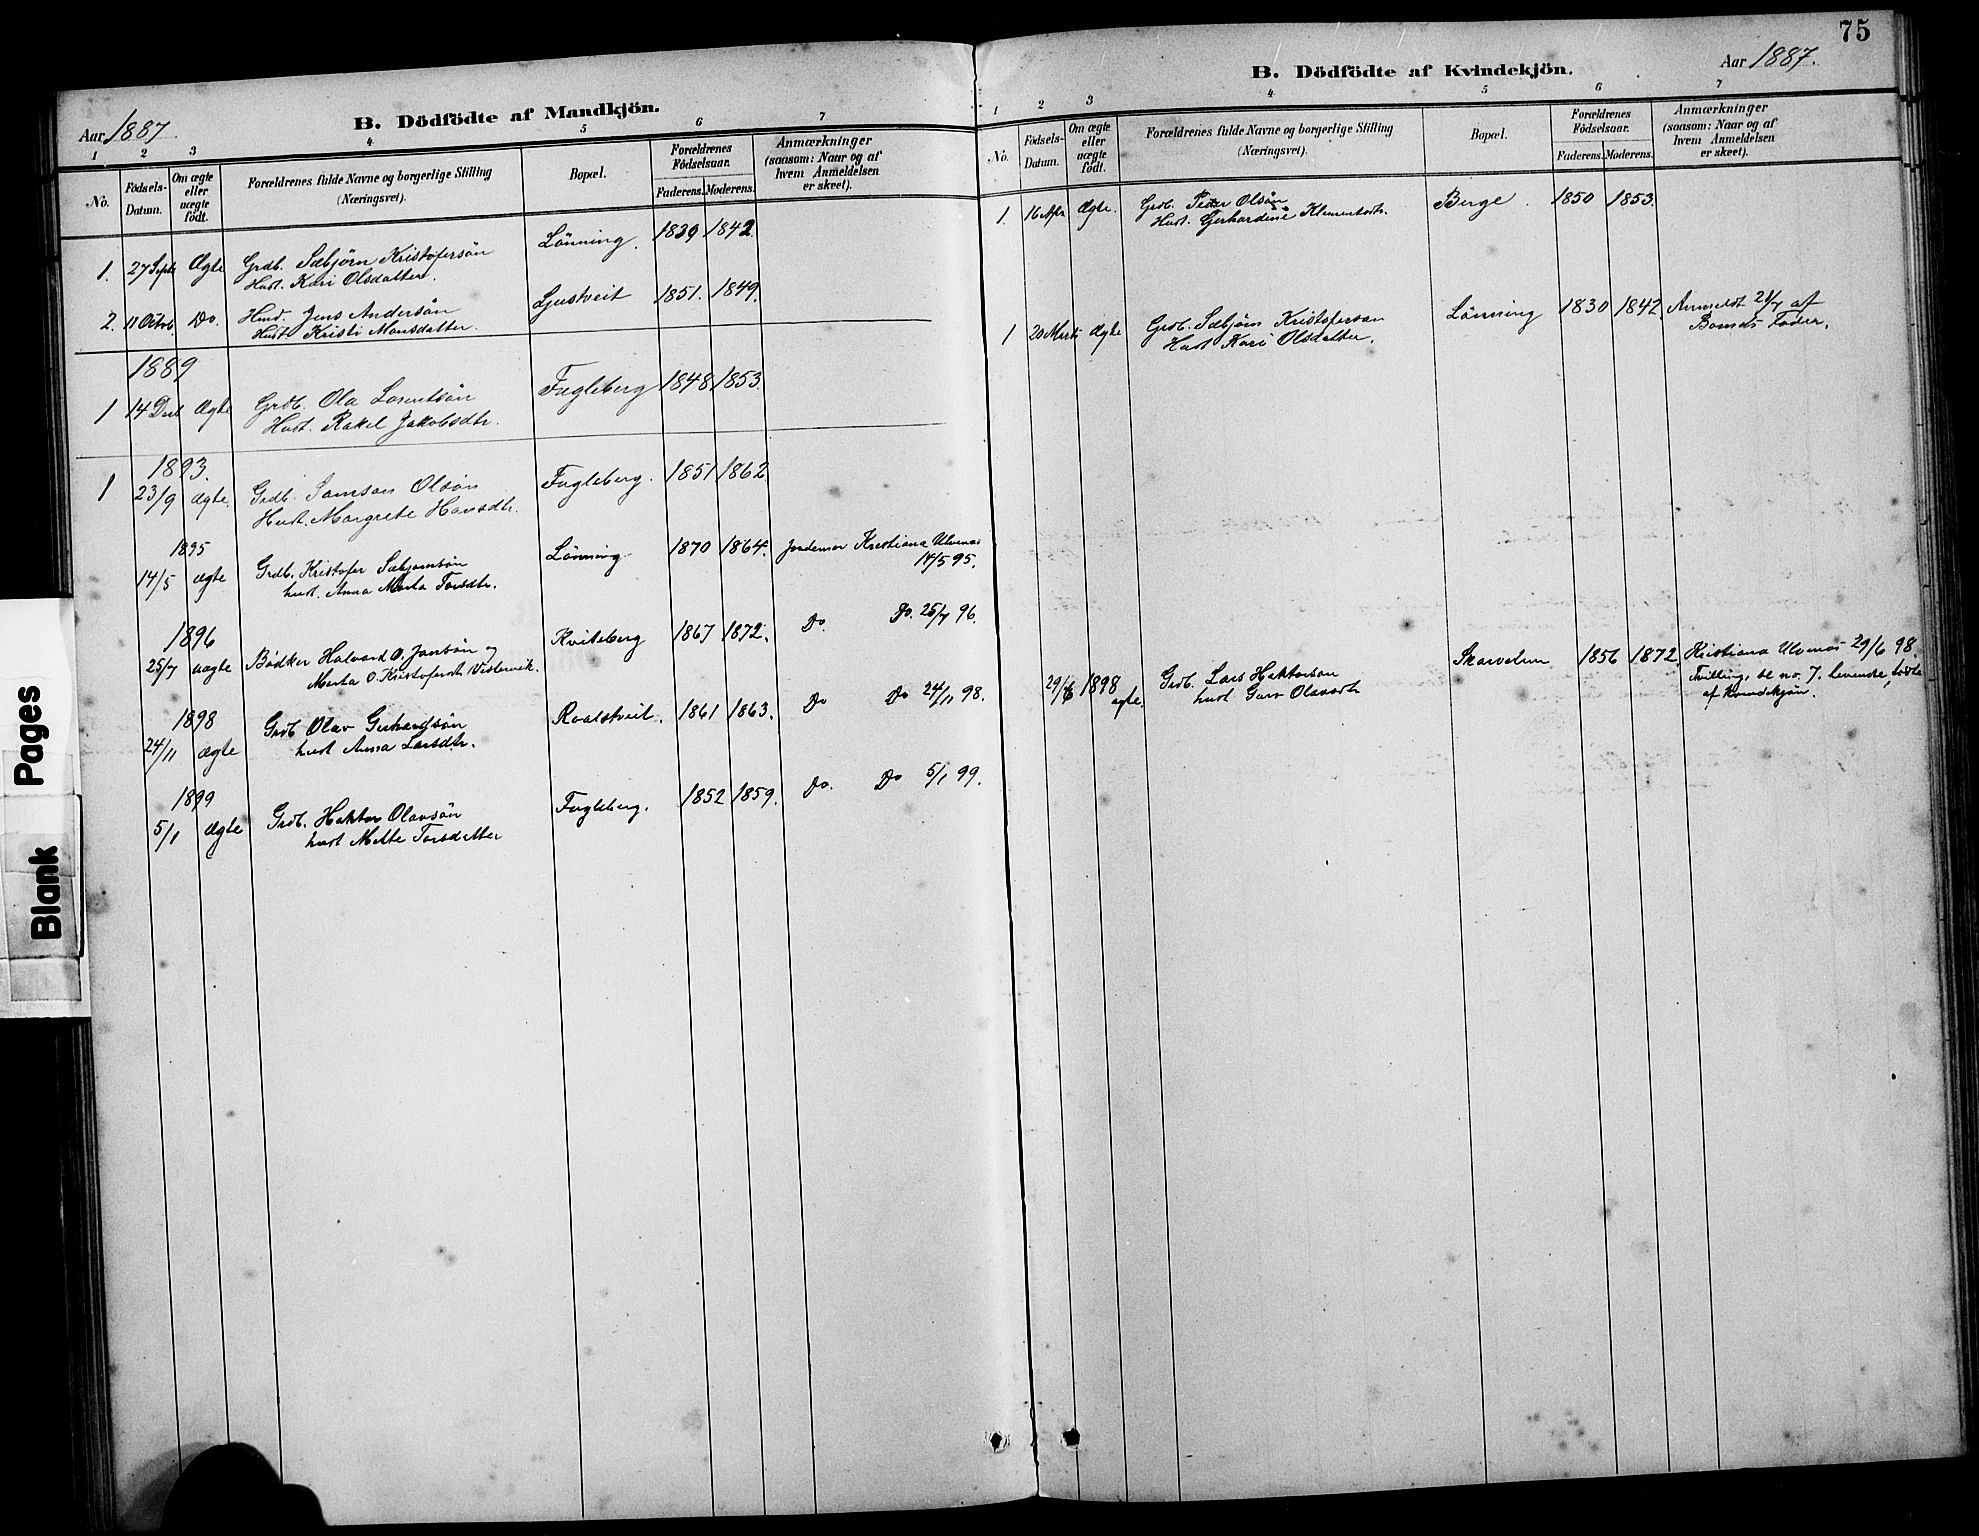 Aar 1887.
B. Dödfödte af Mandkjön.
1 2 3 4 5 6 7
No.
Födsels-Datum.
Om ægte eller uægte födt.
Forældrenes fulde Navne og borgerlige Stilling (Næringsvei).
Bopæl.
Forældrenes Födselsaar.
Faderens. Moderens.
Anmærkninger (saasom: Naar og af hvem Anmeldelsen er skeet).
1. 27 Septr Ægte Grdb. Sæbjørn Kristofersön Lönning. 1839 1842.
Hust. Kari Olsdatter.
2. 11 Octob. Do. Jens Andersön 1851. 1849.
Hust. Kristi Monsdatter.
1889
1 14 Ægte Grdb. Ola Larentsön Fugleberg 1848 1853.
Hust. Rakel Jakobsdtr.
1893.
1 23/9 Ægte. Grdb. Samson Olsön Fugleberg. 1851 1862
Hust. Margrete Hansdtr.
1895
14/5 Ægte Grdb. Kristofer Sæbjörnsön Lönning 1870 1864. Jordemor Kristiana Ulvenes
hust. Anna Marta Torsdtr. 14/5 95.
1896
25/7 uægte Bödker Halvard O. Jansön og Kviteberg 1867 1872. Do. Do. 25/7 96.
Marta O. Kristofersdt. Vestervik.
1898
24/11 Ægte Grdb Olav Gerhardsön Roaldtveit. 1861 1863. Do Do 24/11 98.
hust Anna Larsdtr.
1899
5/1 Ægte Grdb. Haktor Olavsön Fugleberg. 1852 1859. Do. Do 5/1 99.
hust Mette Torsdatter
75
B. Dödfödte af Kvindekjön.
Aar 1887.
1 2 3 4 5 6 7
No.
Födsels-Datum.
Om ægte eller uægte födt.
Forældrenes fulde Navne og borgerlige Stilling (Næringsvei).
Bopæl.
Forældrenes Födselsaar.
Faderens. Moderens.
Anmærkninger (saasom: Naar og af hvem Anmeldelsen er skeet).
1. 16 Apr Ægte. Grdb. Peder Olsön Berge. 1850 1853.
Hust. Gerhardine Klementsdtr.
1 20 Marts Ægte Grdb. Sæbjörn Kristofersan Lönning 1830 1842. Anmeldt 21/7 af
Hust Kari Olsdatter. Barnets Fader.
29/6 1898 ægte. Grdb. Lars Haktorsan 1856 1872 Kristiana Ulvenes 29/6 98.
hust Olavsdtr Tvilling, se no. 7. levende födte
af Kvindekjön.
Blank Pages